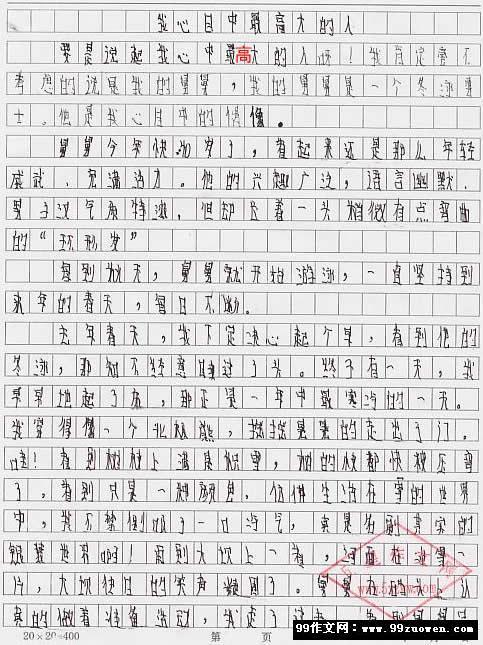 我心目中最高大的人
要是说起我心中最高大的人呀！我肯定毫不
考虑的说是我的舅舅，我的舅舅是一个冬泳勇
士。他是我心目中的偶像。
舅舅今年快40岁了，看起来还是那么年轻
威武、充满活力。他的兴趣广泛，语言幽默、
男子汉气质特浓，但却长着一头稍微有点弯曲
的“环形发”
每到秋天，舅舅就开始游泳，一直坚持到
来年的春天，每日不
去年春天，我下定决心起个早，看到他的
冬泳，那知不经意睡过了头。终于有一天，我
早早地起了床，那正是一年中最寒冷的一天。
我穿得像一个北极熊，摇摇晃晃的走出了门。
哇！看到树枝上满是积雪，树的枝都快被压弯
了。看到只是一种颜色。仿佛生活在雪的世界
中，我不禁倒吸了一口冷气，真是名副其实的
银装世界啊！雨到大坝上一看，河面
片，大坝使白的笑声
真的做着准备运动，我走了过去，
20×20=400
第 页
99作文网：www.99zuowen.com